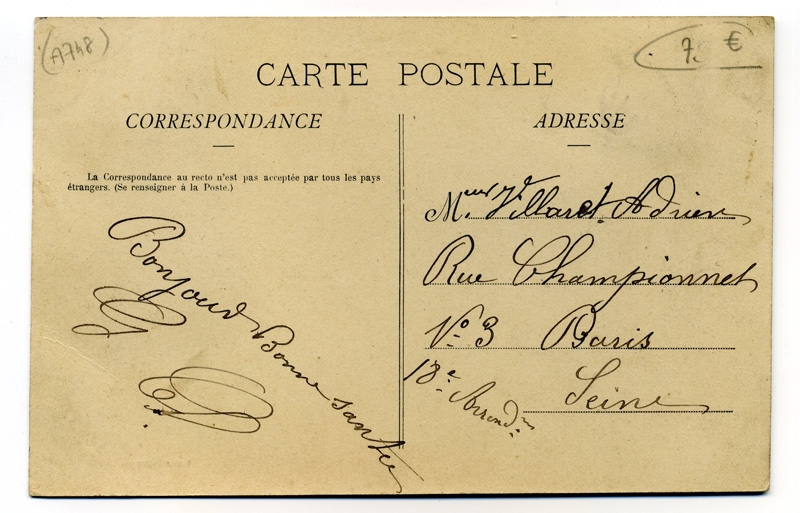 (A748)
7. €
CARTE POSTALE
CORRESPONDANCE
La Correspondance au recto n'est pas acceptée par tous les pays
étrangers. (Se renseigner à la Poste.)
Bonjour Bonne santée
ADRESSE
Mr Villaret Adrien
Rue Championnet
No 3 Paris
18e Arrond
Seine